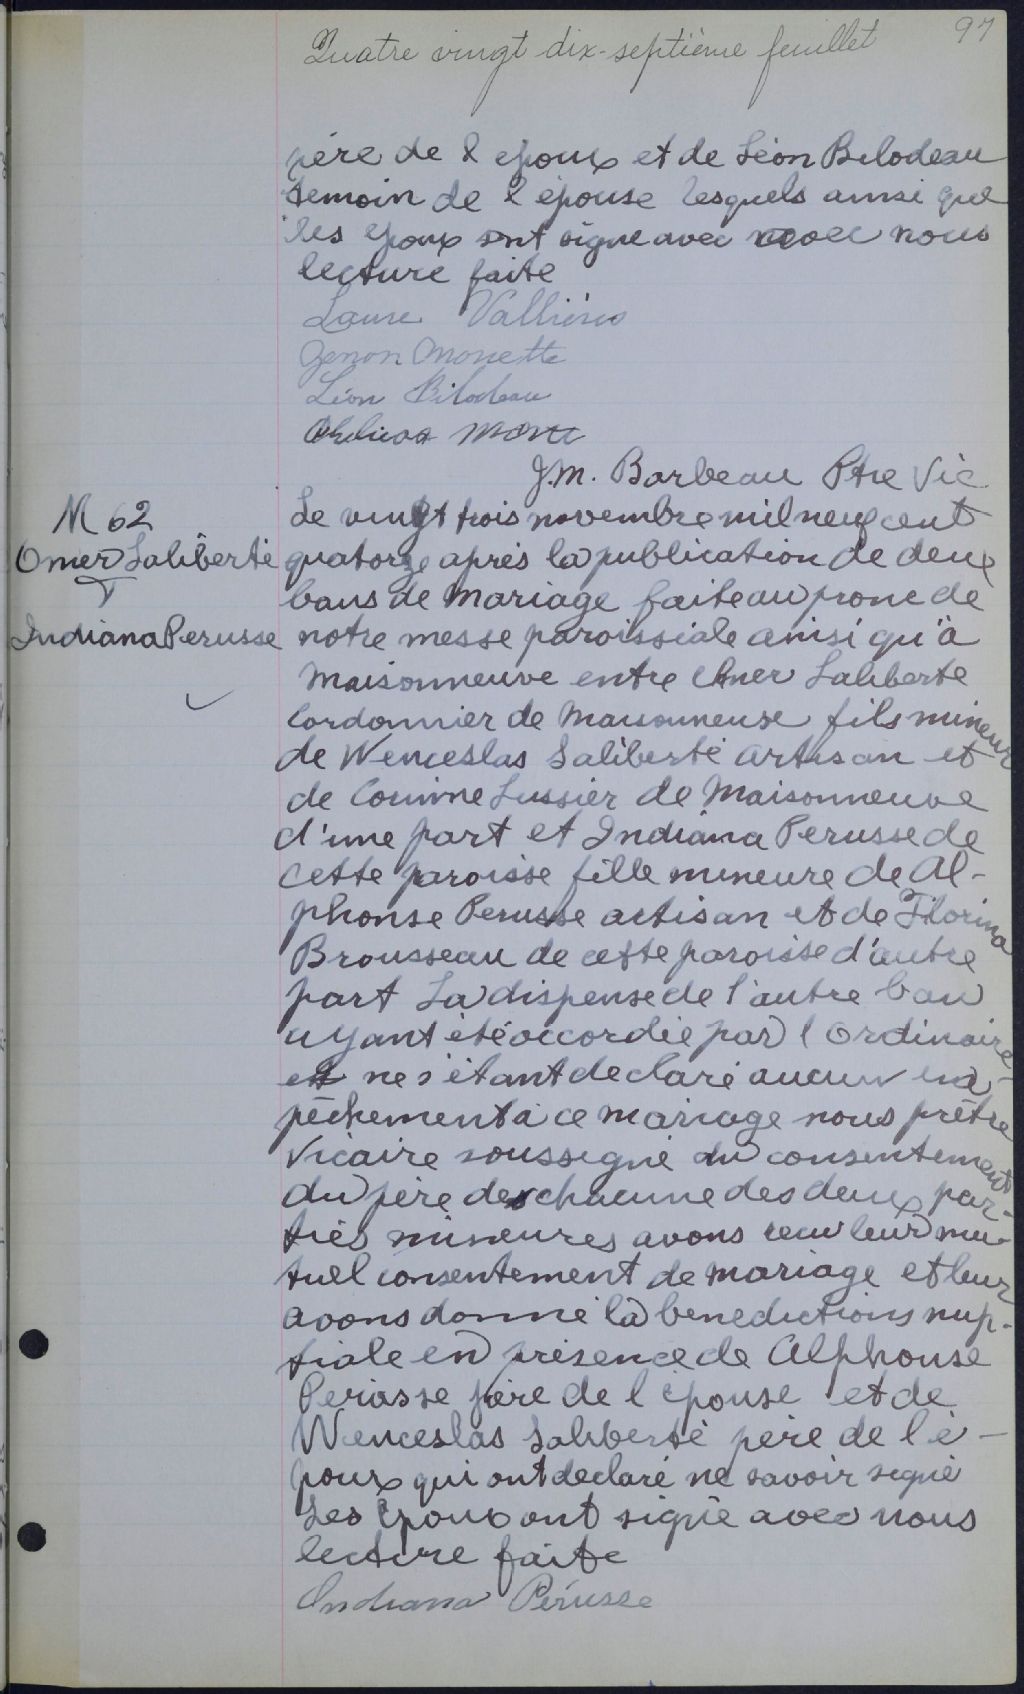 Quatre vingt dix-septième feuillet
97
père de l epoux et de Léon Bilodeau
temoin de l épouse lesquels ainsi que
les epoux ont signe avec avec nous
lecture faite
Laure Vallières
Zenon Monette
Léon Bilodeau
J.M. Barbeau Ptre Vic
M 62
Omer Laliberté
Indiana Perusse
Le vingt trois novembre mil neuf cent
quatorze après la publication de deux
bans de mariage faite au prone de
notre messe paroissiale ainsi qu'à
Maisonneuve entre Omer Laliberte
Cordonnier de Maisonneuve fils mineur
de Wenceslas Laliberté artisan et
de Corinne Lussier de Maisonneuve
d'une part et Indiana Perusse de
cette paroisse fille mineure de Al-
phonse Perusse artisan et de Florina
Brousseau de cette paroisse d'autre
part La dispense de l'autre ban
ayant été accordée par l Ordinaire
et ne s'étant declaré aucun em-
pêchement à ce mariage nous prêtre
Vicaire soussigné du consentement
du père de chacune des deux par-
ties mineures avons recu leur mu-
tuel consentement de mariage et leur
avons donné la benedictions nup-
tiale en présence de Alphonse
Perusse père de l épouse et de
Wenceslas Laliberté père de l'é-
poux qui ont declaré ne savoir signé
Les Epoux ont signé avec nous
lecture faite
Indiana Pérusse